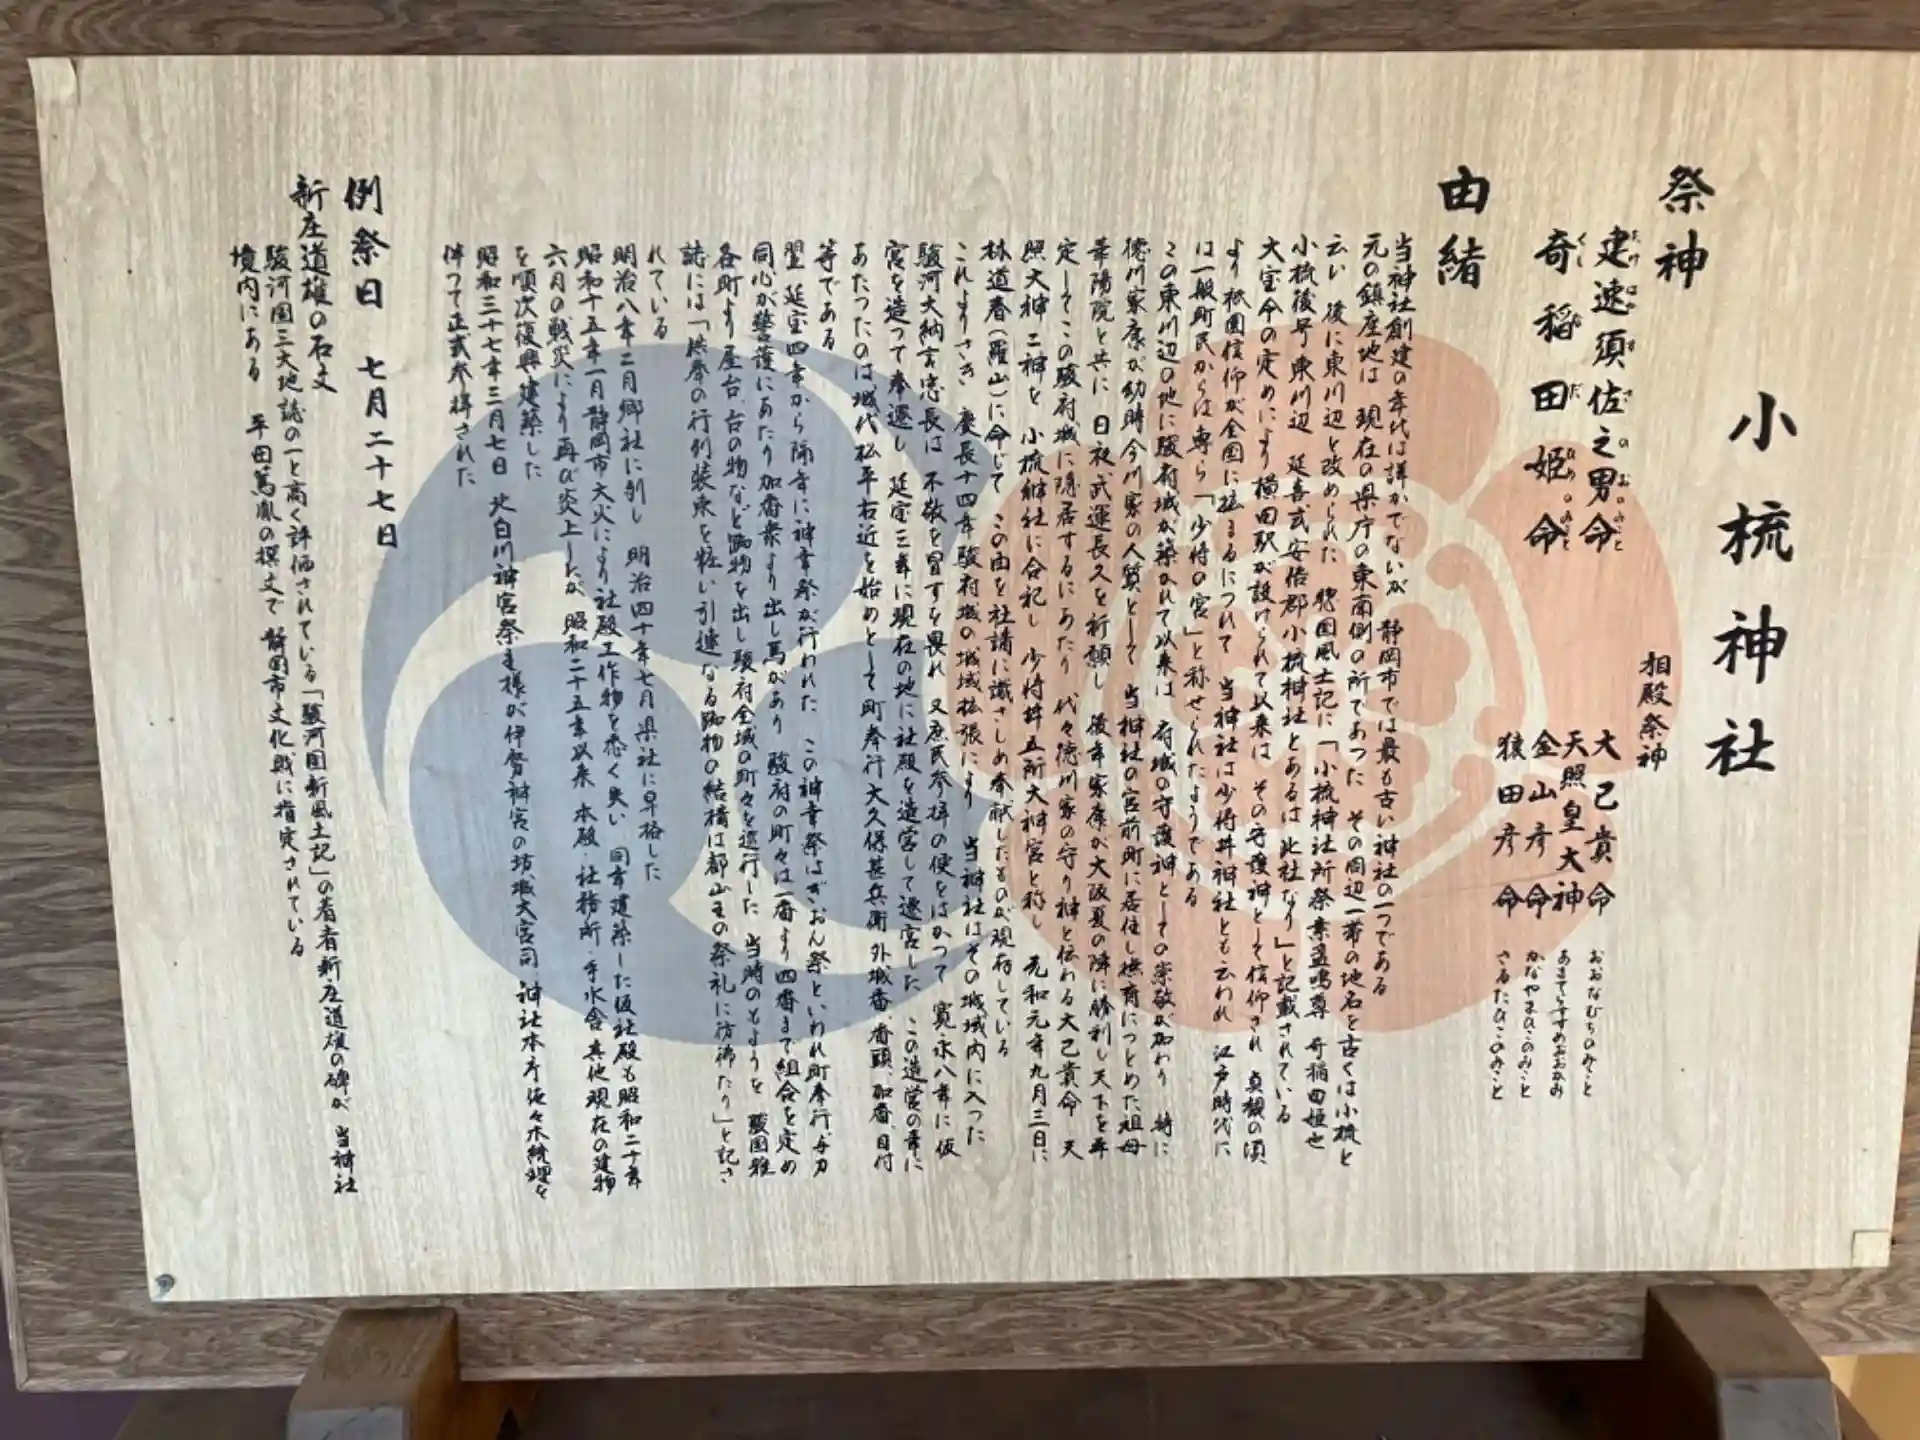 小梳神社
祭神
建速須佐之男命
たけはやすさのおのみこと
奇稲田姫命
くしいなだひめのみこと
相殿祭神
大己貴命 おおなむちのみこと
天照皇大神 あまてらすすめおおかみ
金山彦命 かなやまひこのみこと
猿田彦命 さるたひこのみこと
由緒
当神社創建の年代は詳かでないが 静岡市では最も古い神社の一つである
元の鎮座地は 現在の県庁の東南側の所であった その周辺一帯の地名を古くは小梳と
云い 後に東川辺と改められた 惣国風土記に「小梳神社所祭素盞嗚尊 奇稲田姫也
小梳後号東川辺 延喜式安倍郡小梳神社とあるは 此社なり」と記載されている
大宝令の定めにより 横田駅が設けられて以来は その守護神として信仰され 貞観の頃
より祇園信仰が全国に拡まるにつれて 当神社は少将井神社とも云われ 江戸時代に
は一般町民からは専ら「少将の宮」と称せられたようである
この東川辺の地に駿府城が築かれて以来は 府城の守護神としての崇敬が加わり 特に
徳川家康が幼時今川家の人質として 当神社の宮前町に居住し撫育につとめた祖母
華陽院と共に 日夜武運長久を祈願し 後年家康が大阪夏の陣に勝利し天下を平
定してこの駿府城に隠居するにあたり 代々徳川家の守り神と伝わる大己貴命 天
照大神 二神を 小梳神社に合祀し 少将井五所大神宮と称し 元和元年九月三日に
林道春(羅山)に命じて この由を社譜に識さしめ奉献したものが現存している
これよりさき 慶長十四年駿府城の城域拡張により 当神社はその城域内に入った
駿河大納言忠長は 不敬を冒すを畏れ 又庶民参拝の便をはかって 寛永八年に仮
宮を造って奉遷し 延宝三年に現在の地に社殿を造営して遷宮した この造営の年に
あたったのは城代松平右近を始めとして町奉行大久保甚兵衛 外城番、番頭、加番、目付
等である
翌 延宝四年から隔年に神幸祭が行われた この神幸祭はぎおん祭といわれ町奉行、与力
同心が警護にあたり加番衆より出し馬があり 駿府の町々は一番より四番まで組合を定め
各町より屋台、台の物など踟物を出し駿府全域の町々を巡行した 当時のもようを 駿国雅
誌には「供奉の行列装束を粧い引連なる踟物の結構は都山王の祭礼に彷彿たり」と記さ
れている
明治八年二月郷社に列し 明治四十年七月県社に昇格した
昭和十五年一月静岡市大火により社殿工作物を悉く失い 同年建築した仮社殿も昭和二十年
六月の戦災により再び炎上したが 昭和二十五年以来 本殿・社務所・手水舎 其他現在の建物
を順次復興建築した
昭和三十七年三月七日 北白川神宮祭主様が伊勢神宮の坊城大宮司 神社本庁佐々木統理を
伴って正式参拝された
例祭日 七月二十七日
新庄道雄の石文
駿河国三大地誌の一と高く評価されている「駿河国新風土記」の著者新庄道雄の碑が 当神社
境内にある 平田篤胤の撰文で 静岡市文化財に指定されている